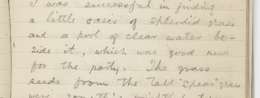 I was successful in finding
a little oasis of splendid grass
and a pool of clear water be-
side it, which was good news
for the party. The grass
seeds from the tall "spear" grass
were